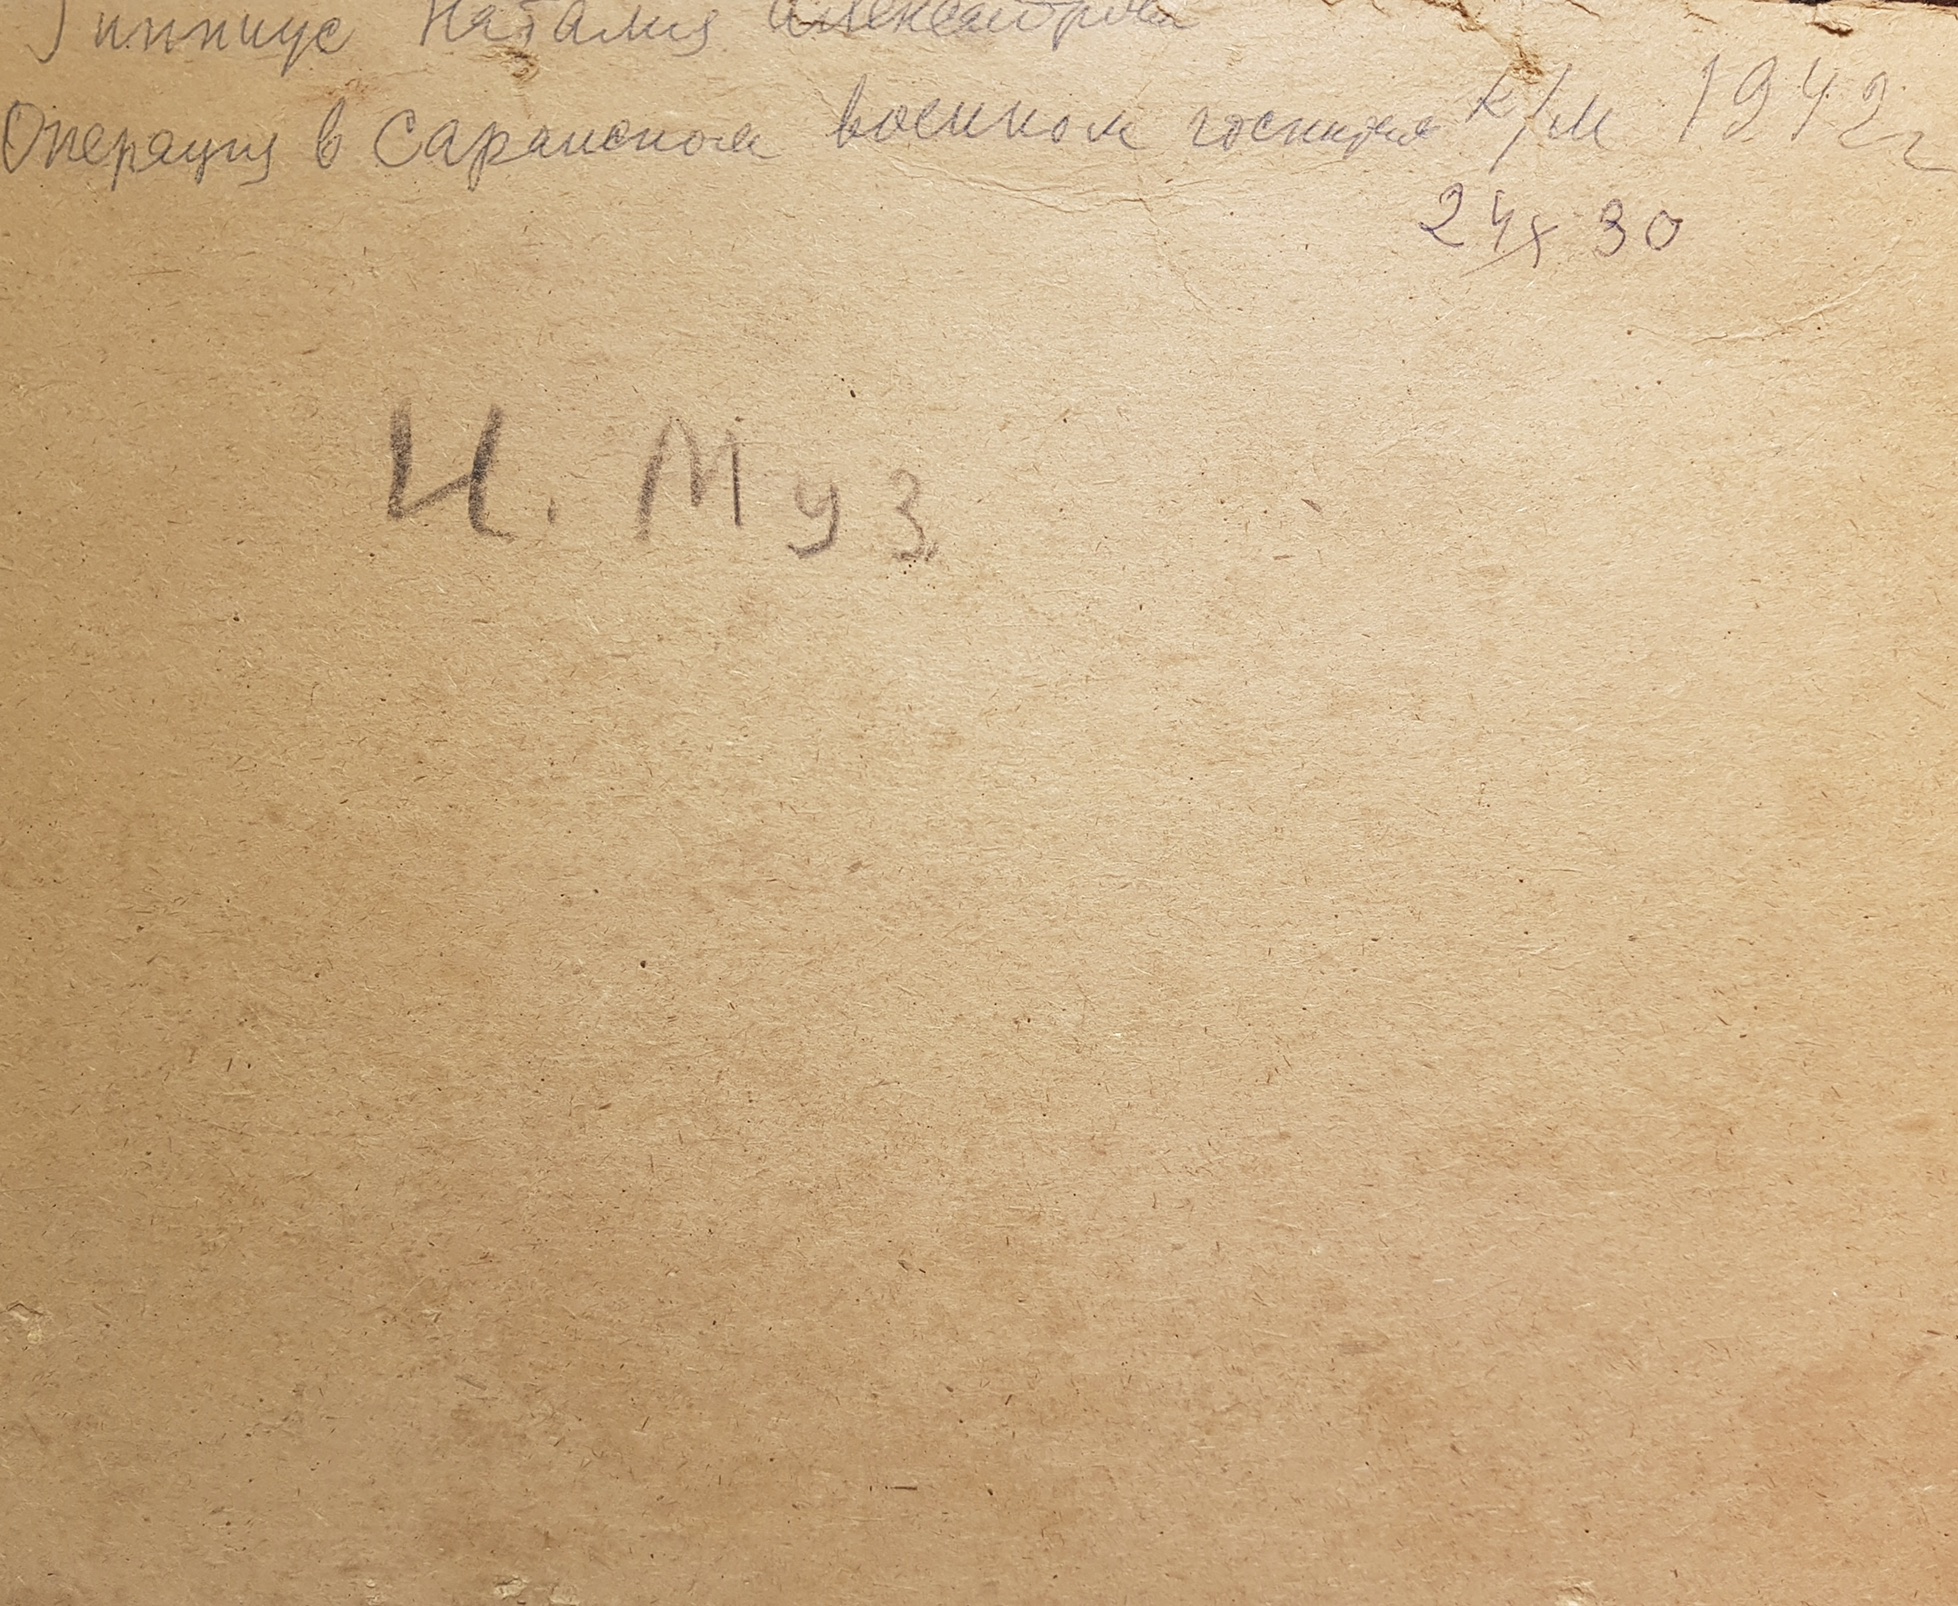 Гиппиус Наталия Александровн
Операция в Саранском военном госпитале к/м 1942г
24х30
И. Муз.